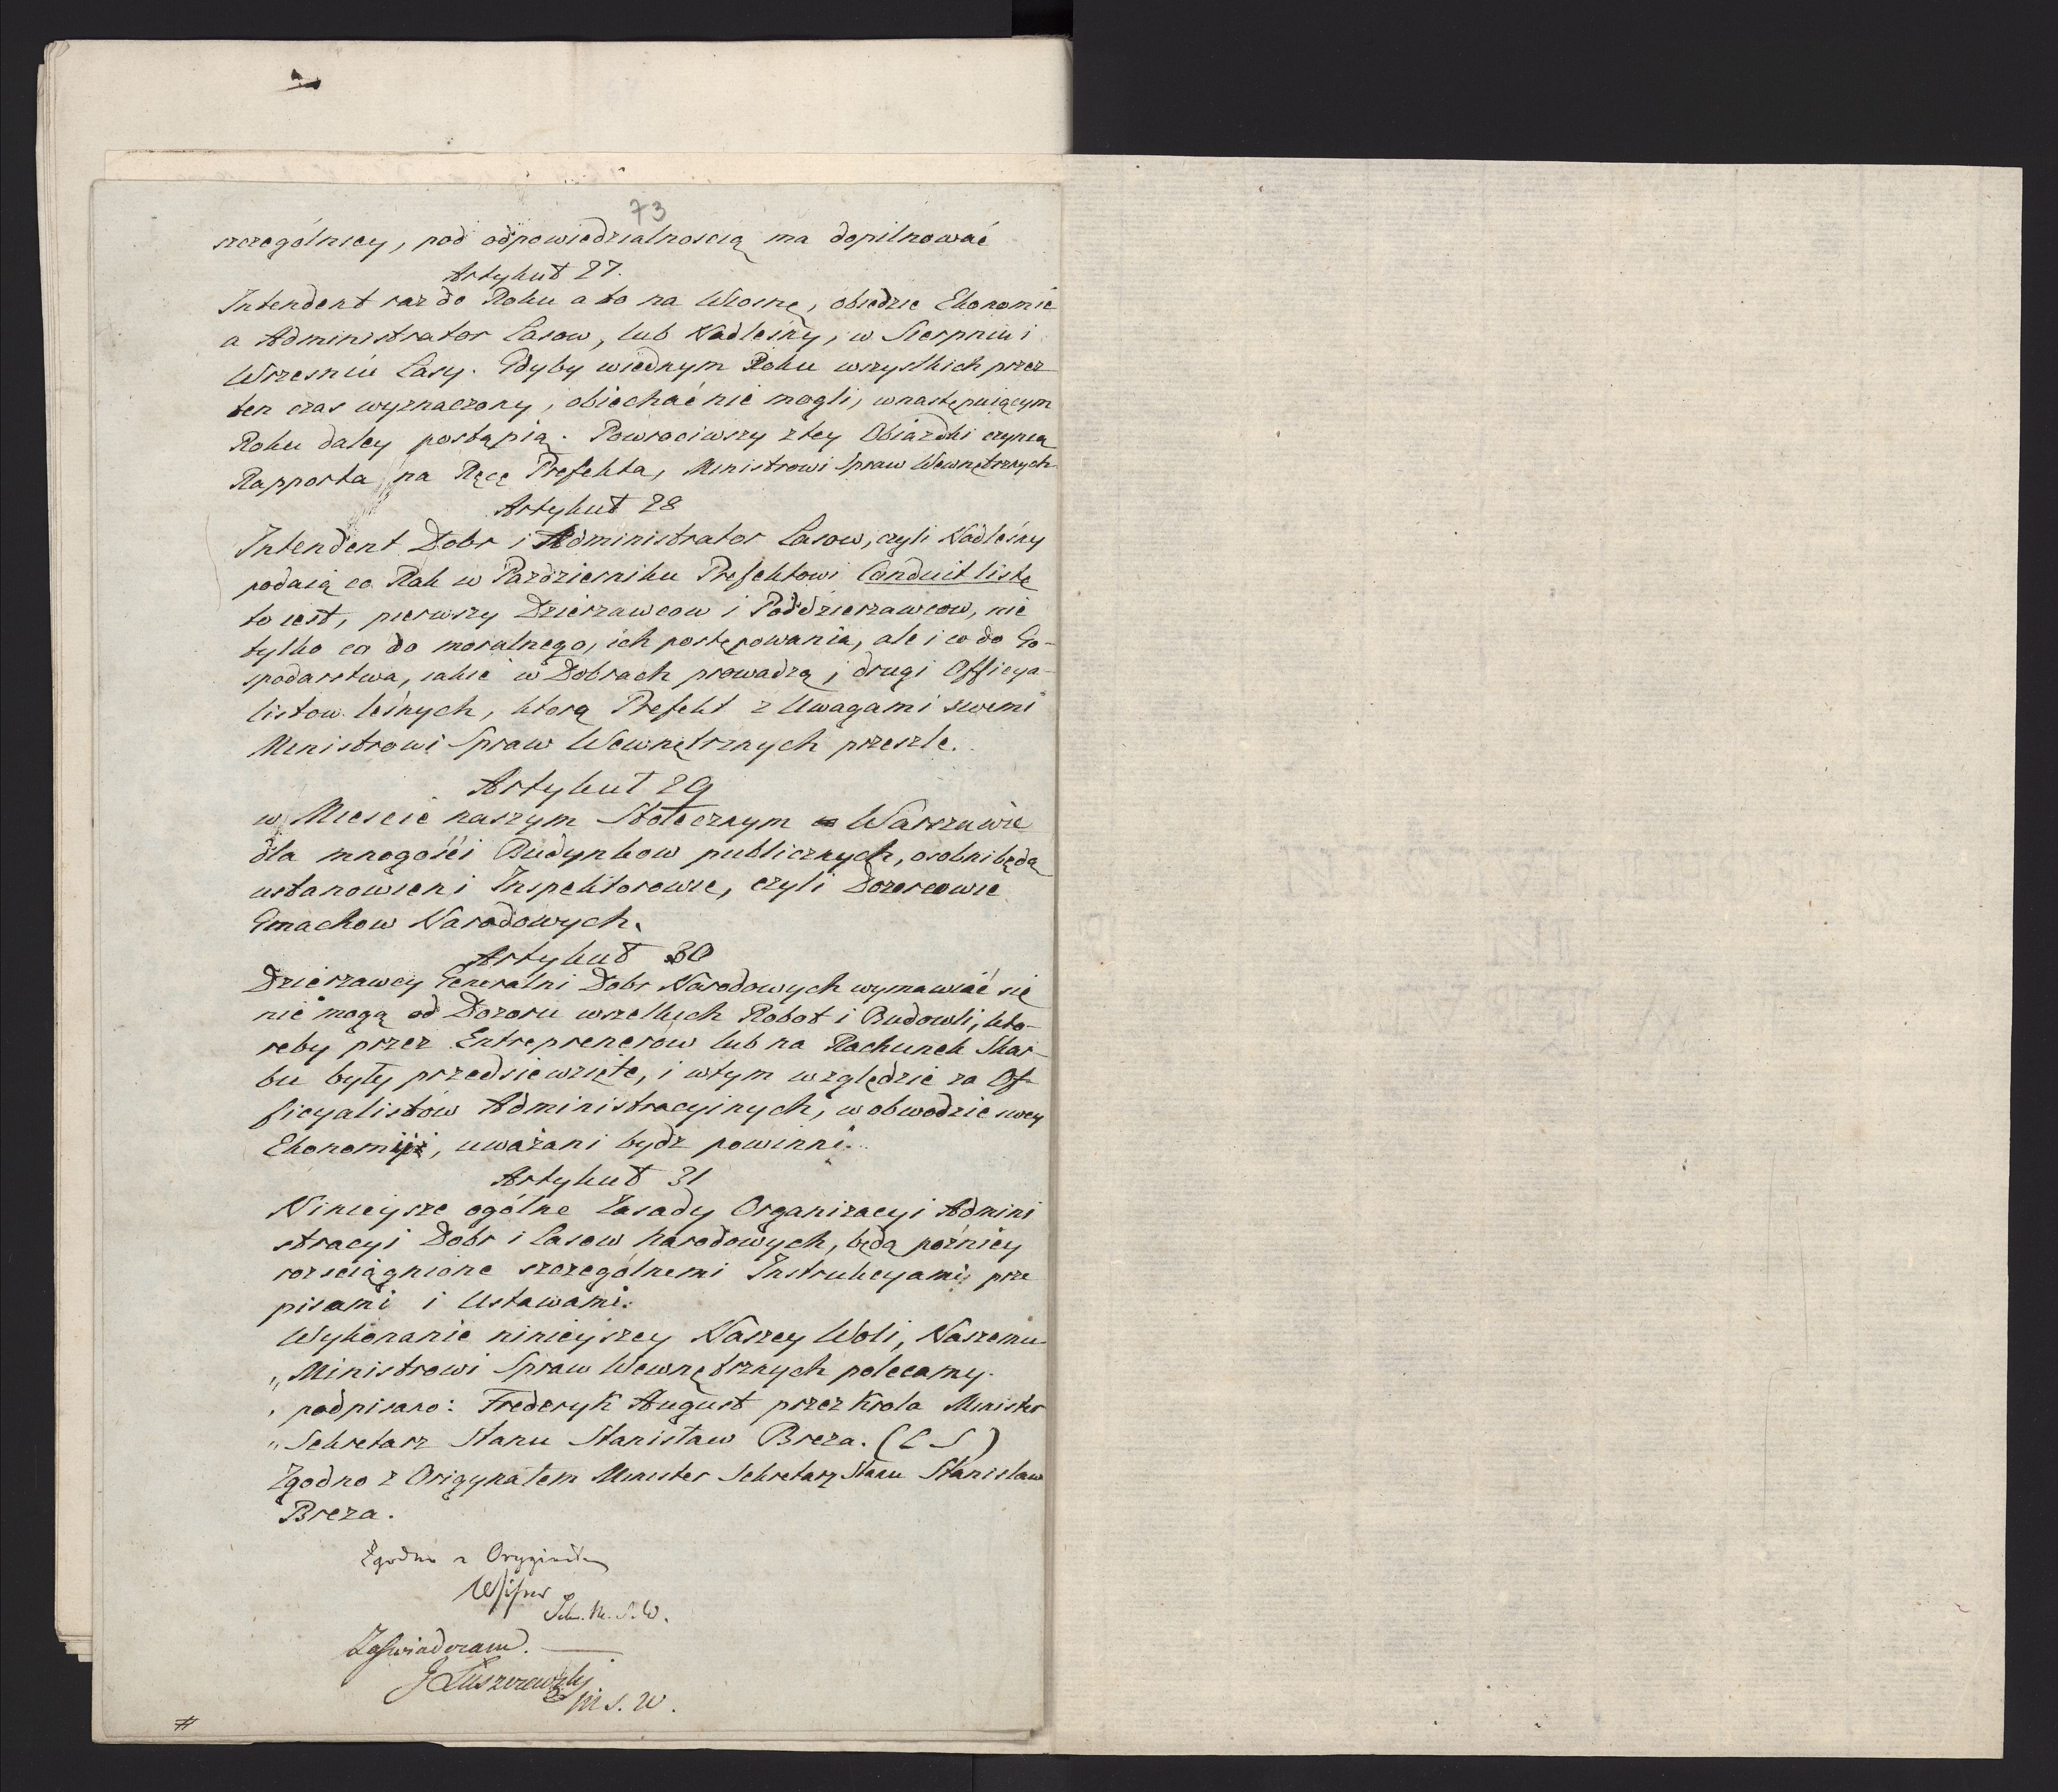 73
szczególniey, pod odpowiedzialnoscią ma dopilnować
Artykuł 27.
Intendent raz do Roku a to na Wiosnę, obiedzie Ekonomie
a Administrator Lasow, lub Nadleśny, w Sierpniu i
Wrzesniu Lasy. Gdyby wiednym Roku wszystkich przez
ten czas wyznaczony, obiechać nie mogli, wnastępuiącym
Roku daley postąpią. Powrociwszy ztey Obiazdki czynią
Rapporta na Ręce Prefekta, Ministrowi Spraw Wewnętrznych
Artykuł 28
Intendent Dobr i Administrator Lasow, czyli Nadleśny
podaią co Rok w Pazdzierniku Prefektowi Conduit listę
to iest, pierwszy Dzierzawcow i Poddzierzawcow, nie
tylko co do moralnego, ich postępowania, ale i co do Go-
spodarstwa, iakie w Dobrach prowadzą; drugi Officya-
listow leśnych, ktorą Prefekt z Uwagami swemi
Ministrowi Spraw Wewnętrznych przeszle.
Artykuł 29
w Miescie naszym Stołecznym Warszawie
dla mnogośći Budynkow publicznych, osobni będą
ustanowieni Inspektorowie, czyli Dozorcowie
Gmachow Narodowych.
Artykuł 30
Dzierzawcy Generalni Dobr Narodowych wymawiać się
nie mogą od Dozoru wszelkich Robot i Budowli, kto-
reby przez Entreprenerow lub na Rachunek Skar-
bu były przedsiewzięte, i wtym względzie za Of-
ficyalistów Administracyinych, w obwodzie swey
Ekonomii, uważani bydz powinni.
Artykuł 31
Ninieysze ogólne Zasady Organizacyi Admini
stracyi Dobr i Lasow Narodowych, będą poźniey
rozsciągnione szczególnemi Instrukcyami, prze
pisami i Ustawami.
Wykonanie ninieyszey Naszey Woli, Naszemu
„Ministrowi Spraw Wewnętrznych polecamy.
„podpisano: Frederyk August przez Krola Minister
„Sekretarz Stanu Stanisław Breza. (L S)
Zgodno z Origynałem Minister Sekretarz Stanu Stanisław
Breza.
Zgodno z Oryginałem
Sek. M. S. W.
Zaświadczam.
J Łuszczewski
M S. W.